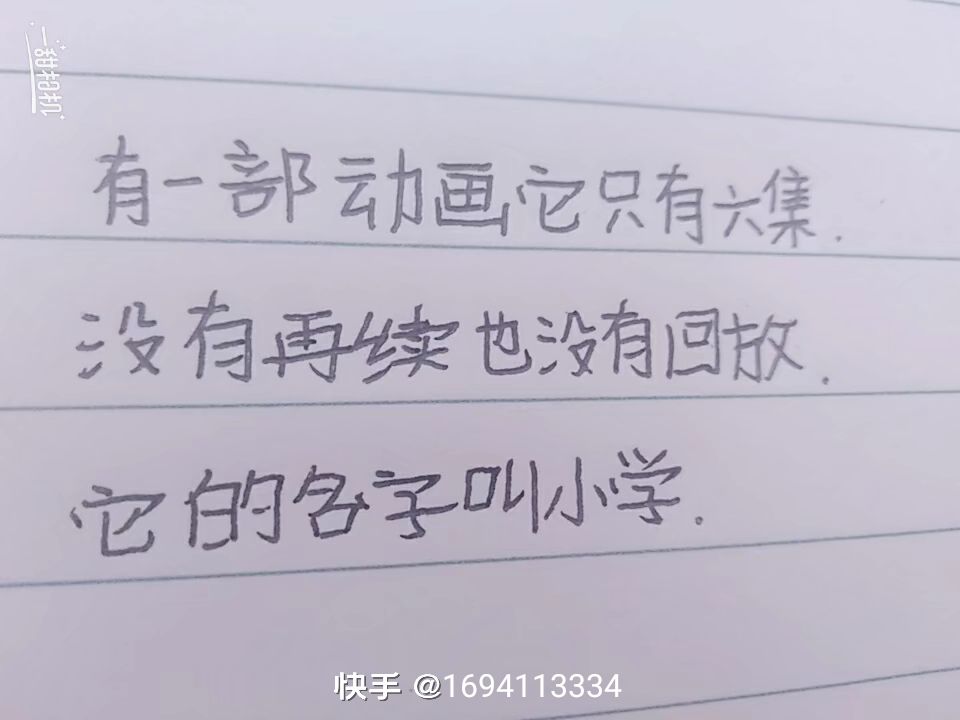 一甜相机
有一部动画它只有六集.
没有再续也没有回放.
它的名字叫小学.
快手 @1694113334